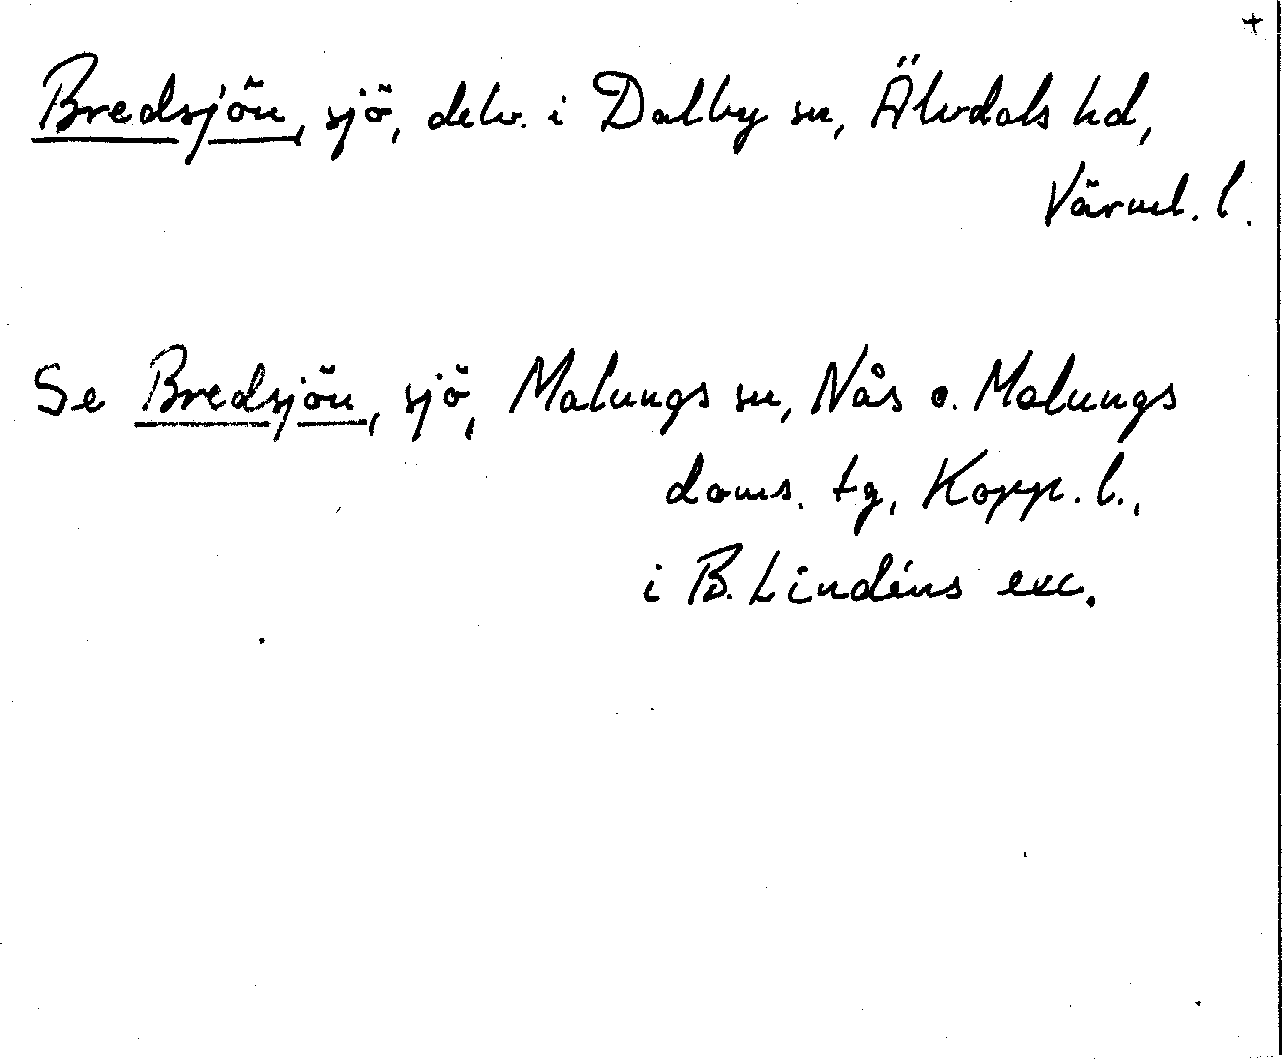 +
Bredsjön, sjö, delv. i Dalby sn, Älvdals hd,
Värml. l.
Se Bredsjön, sjö, Malungs sn, Nås o. Malungs
doms. tg, Kopp. l.,
i B. Lindéns exc.